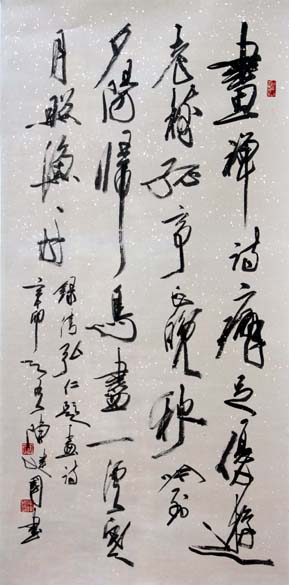 畫禪詩癖足優遊
老樹孤亭正晚秋吟到
夕陽歸鳥盡一溪寒
月照漁舟
錄清弘仁題畫詩
陳建國書